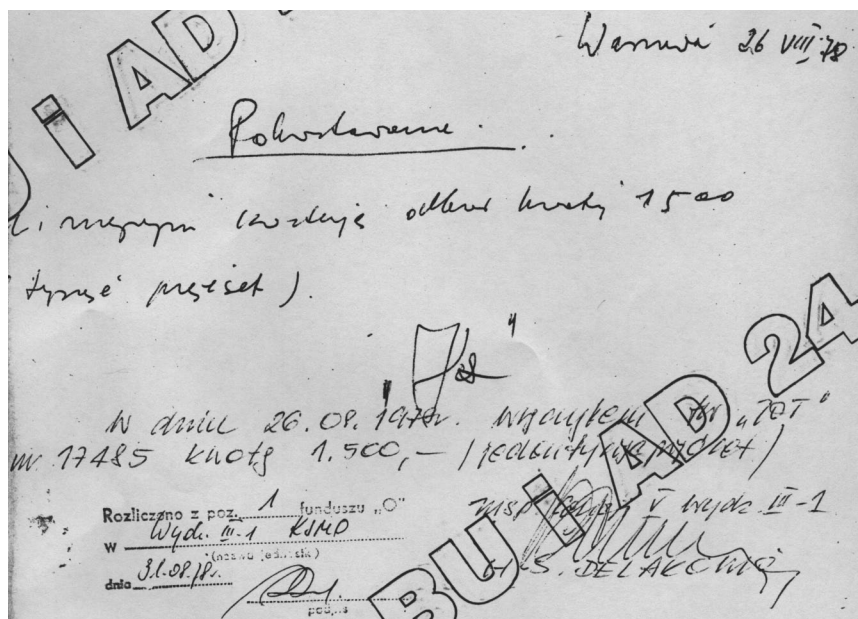 U i AD
Warszawa 26 VIII 78
Pokwitowanie.
niniejszym kwituję odbiór kwoty 1500
tysięć pięćset ).
"
W dniu 26.08.1978r. wręczyłem tw „JOT"
nr 17485 kwotę 1.500,- / jedentysiącpięćset /
Rozliczono z poz. 1 funduszu „O"
w Wydz. III-1 KSMO
(nazwa jednostki)
dnia 31.08.78.
podpis
insp. V wydz. III-1
S.
BU i AD 24